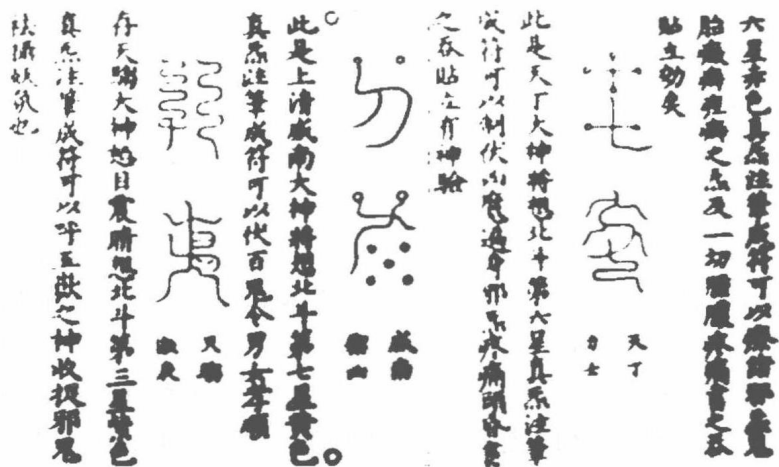 六星赤色真炁注筆成符可以療諸邪鬼
胎之炁及一切疼痛書之吞
貼立効矣
天丁
力士
此是天丁大神將想北斗第六星真炁注筆
成符可以制伏凶魔遍身邪炁疼痛書
之吞貼立有神驗
威南
此是上清威南大神將想北斗第七星黃色
真炁注筆成符可以伏百鬼令男女孝順
天
存天大神怒目震睛想北斗第三星色
真炁注筆成符可以呼五嶽之神收捉邪鬼
祛攝妖氛也